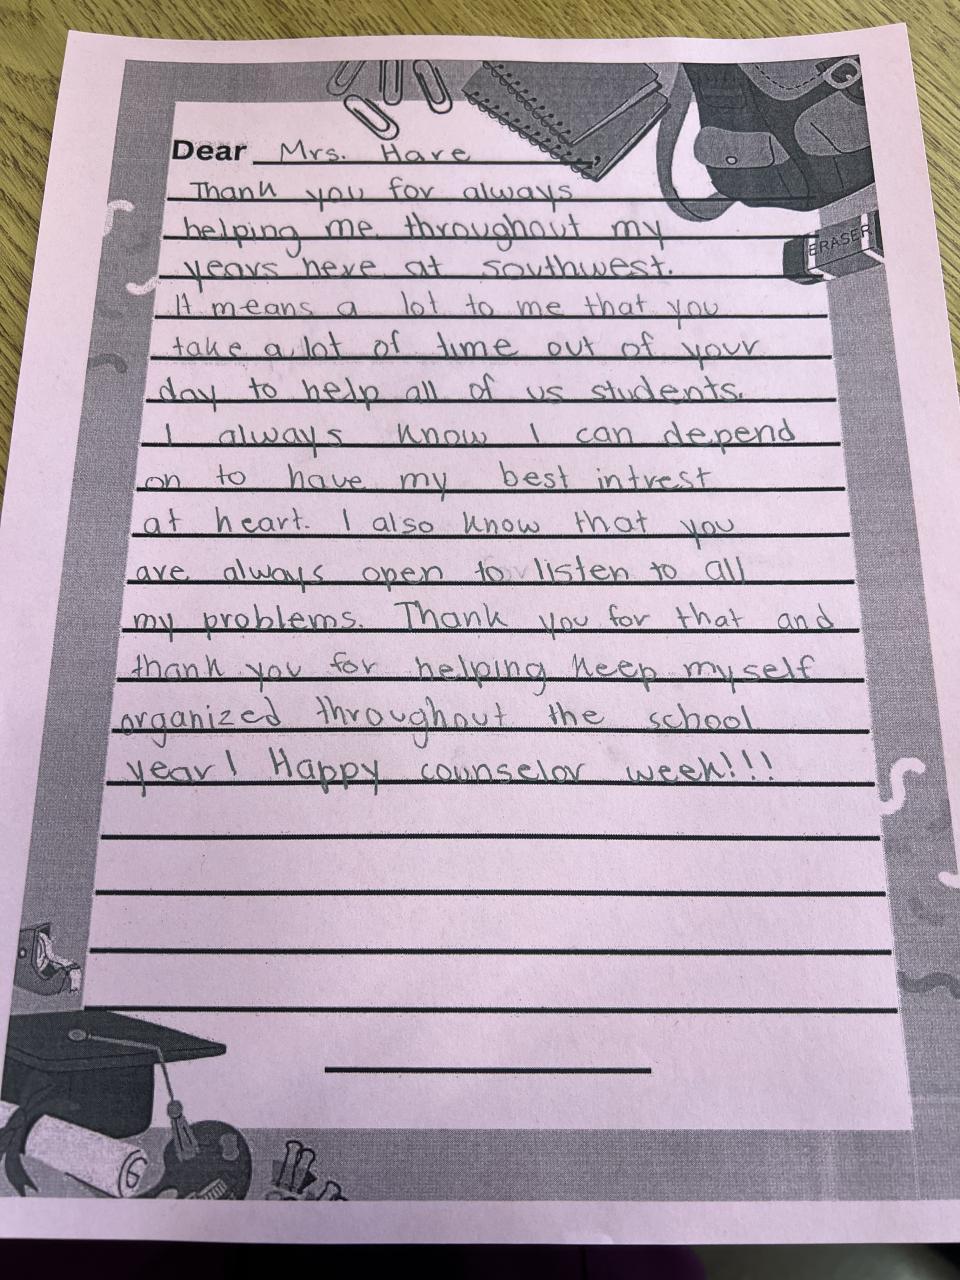 Dear Mrs. Hare
Thank you for always
helping me throughout my
years here at southwest.
It means a lot to me that you
take a lot of time out of your
day to help all of us students.
I always know I can depend
on to have my best intrest
at heart. I also know that you
are always open to listen to all
my problems. Thank you for that and
thank you for helping keep myself
organized throughout the school
year! Happy counselor week!!!
ERASER